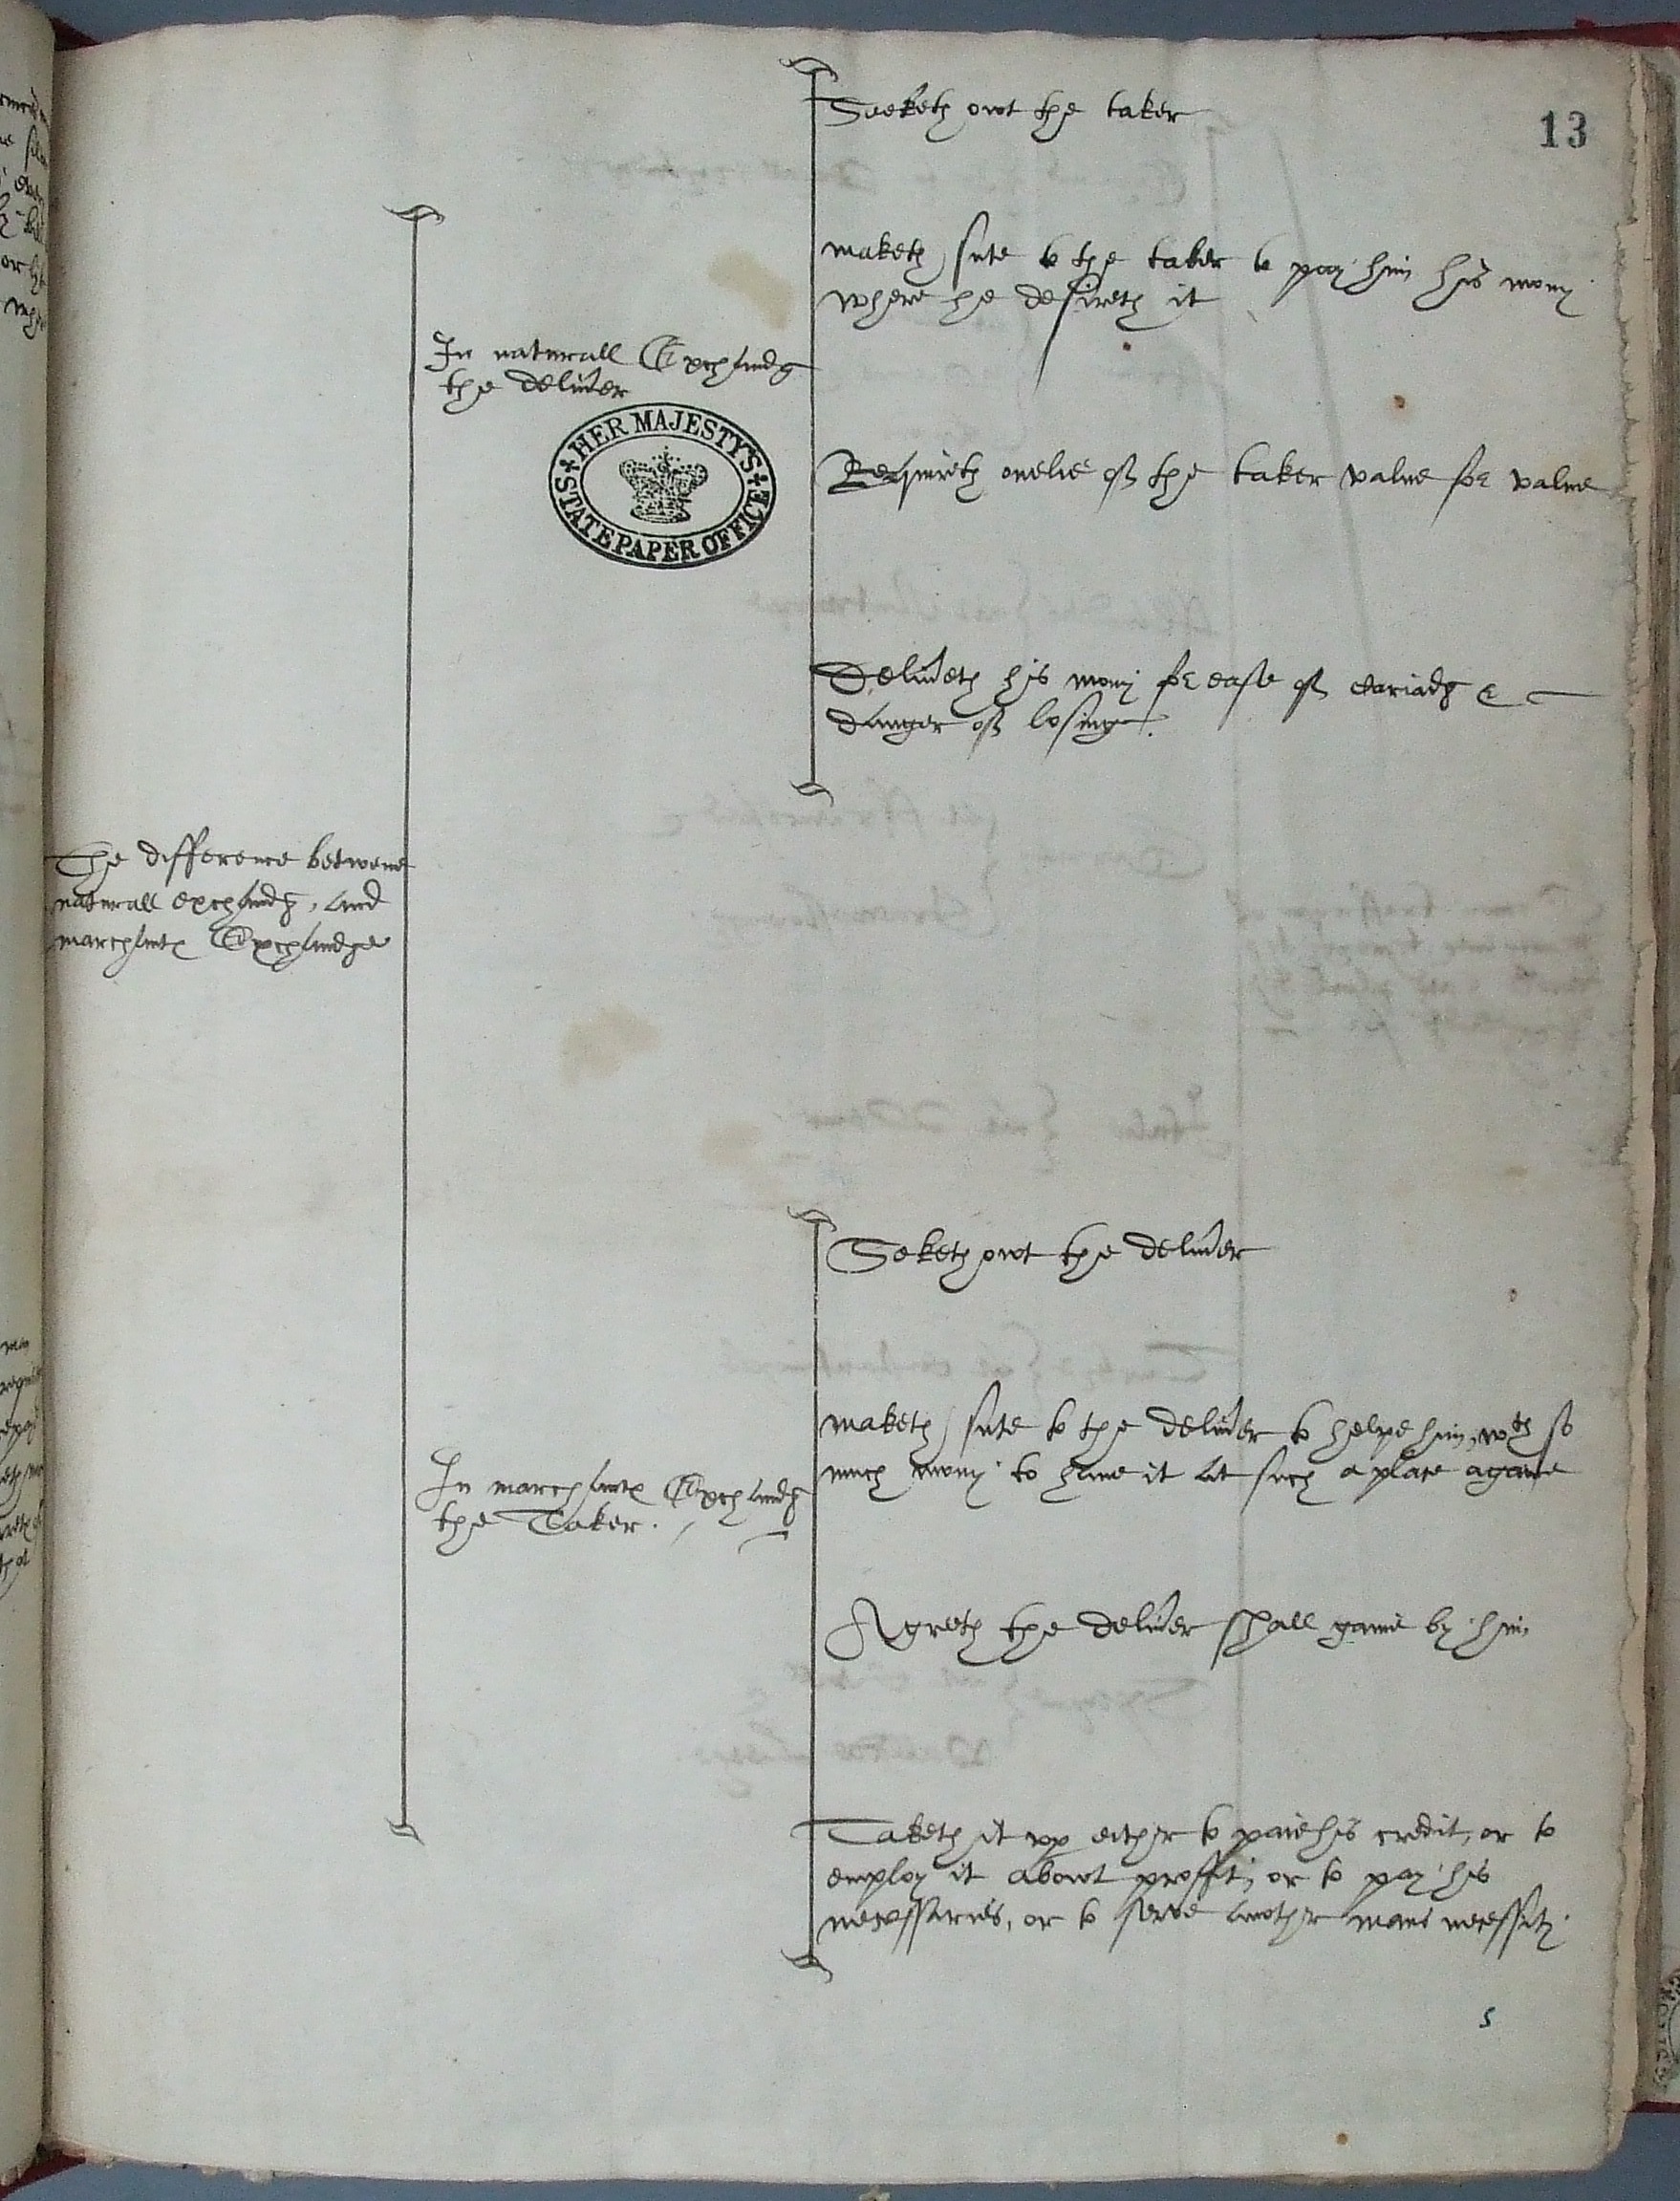 13
The difference betwene
naturall exchandg, and
marchants Exchandge
In naturall Exchandg
the deliuer
HER MAJESTY'S
STATE PAPER OFFICE
Seeketh owt the taker
maketh sute to the taker to pay him his mony
where he desireth it
Requireth onelie of the taker value for value
Deliueth his mony for ease of cariadg &
danger of losinge.
In marchants Exchandg
the Taker.
Seketh owt the deliuer
maketh sute to the deliuer to helpe him, wth so
much mony to haue it at such a place agane
Agreth the deliuer shall gaine by him
Taketh it vp either to paie his credit, or to
employ it abowt proffit, or to pay his
necessaries, or to serve another mans necessity.
5